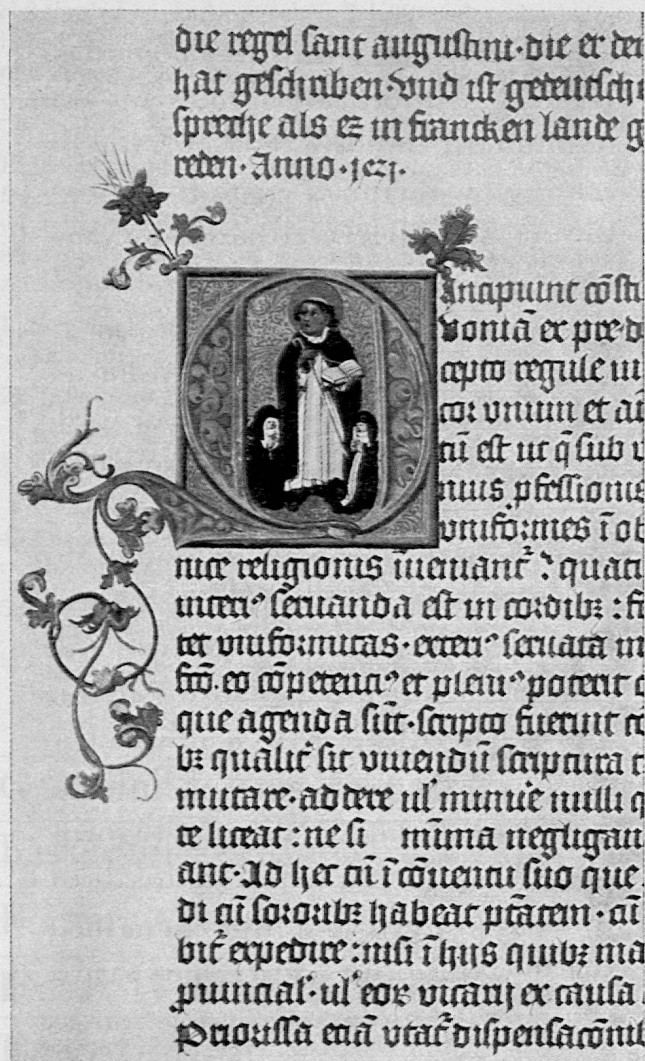 die regel sant augustini·die er der
hat geschriben·vnd ist gedeutsch
spreche als ez in francken lande g
reden·Anno·
Incipiunt cōsti
Qoniā ex pre
cepto regule iu
cor vnum et
cū est ut q̄ sub
nius pfessionis
vniformes ī ob
nice religionis
seruanda est in cordibz:
tet vniformitas· seruata
et potent
que agenda sūt·scripto fuerint
bz qualit̕ sit viuendū scriptura
mutare·addere ul̕ nulli
te liceat:ne si mīma negligan
ant·Ad hec cū ī cōuentu suo que
di cū sororibz habeat ptātem·cū
bit̕ expedire:nisi ī hijs quibz ma
puincial̕·ul̕ eoꝝ vicarij ex causa
Priorissa eciā vtat̕ dispensacōnib